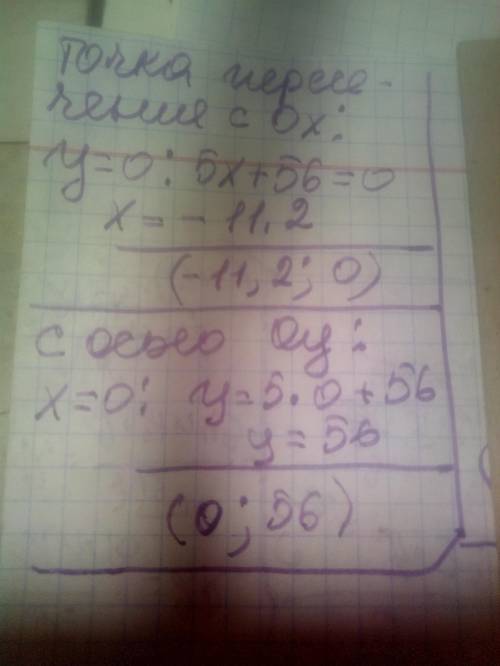 Точка пересе-
чения с Ox:
y=0: 5x+56=0
x=-11,2
(-11,2; 0)
с осью Oy:
x=0: y=5·0+56
y=56
(0; 56)